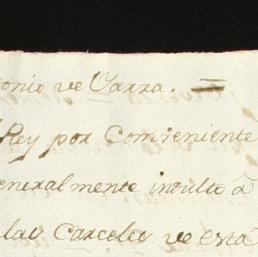 onio de Yarza. =
Rey por Conveniente
eneralmente indulto â
las Carceles de esta